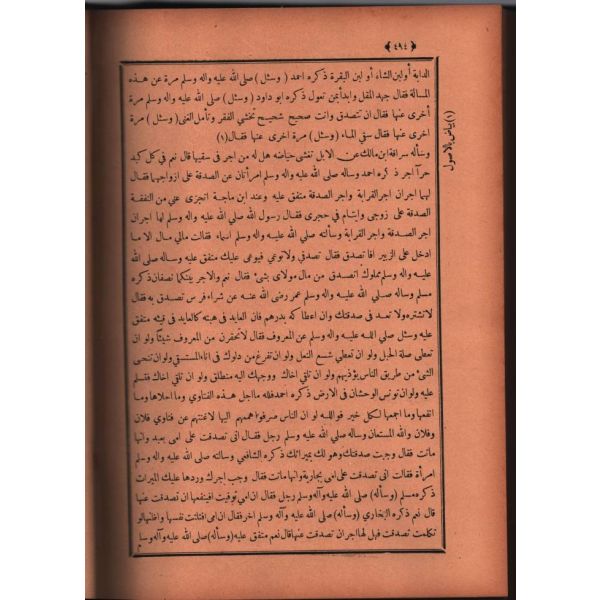 ﴿ ٤٩٤ ﴾
الدابة أولبن الشاء أو لبن البقرة ذكره احمد ( وسئل ) صلى الله عليه واله وسلم مرة عن هذه
المسالة فقال جهد المقل وابدأ بمن تعول ذكره ابو داود ( وسئل ) صلى الله عليه واله وسلم مرة
أخرى عنها فقال ان تتصدق وانت صحيح شحيح تخشى الفقر وتأمل الغنى ( وسئل ) مرة
اخرى عنها فقال سقى الماء ( وسئل ) مرة اخرى عنها فقال (١)
(١) بياض بالاصول
وسأله سراقة ابن مالك عن الابل تغشى حياضه هل له من اجر فى سقيها قال نعم فى كل كبد
حرآ اجر ذكره احمد وساله صلى الله عليه واله وسلم امرأتان عن الصدقة على ازواجهما فقال
لهما اجران اجر القرابة واجر الصدقة متفق عليه وعند ابن ماجة اتجزى عني من النفقة
الصدقة على زوجى وايتام في حجرى فقال رسول الله صلى الله عليه واله وسلم لها اجران
اجر الصدقة واجر القرابة وسألته صلى الله عليه واله وسلم اسماء فقالت مالي مال الا ما
ادخل على الزبير افا تصدق فقال تصدقي ولاتوعي فيوعى عليك متفق عليه وساله صلى الله
عليه واله وسلم مملوك اتصدق من مال مولاى بشئ فقال نعم والاجر بينكما نصفان ذكره
مسلم وساله صلى الله عليه واله وسلم عمر رضى الله عنه عن شراء فرس تصدق به فقال
لاتشتره ولا تعد فى صدقتك وان اعطا كه بدرهم فان العايد فى هبته كالعايد فى قيئه متفق
عليه وسئل صلى الله عليه واله وسلم عن المعروف فقال لاتحقرن من المعروف شيئا ولو ان
تعطى صلة الحبل ولو ان تعطي شسع النعل ولو ان تفرغ من دلوك فى اناء المستسقي ولو ان تنحى
الشئ من طريق الناس يؤذيهم ولو ان تلقي اخاك ووجهك اليه منطلق ولو ان تلقي اخاك فتسلم
عليه ولوان تونس الوحشان فى الارض ذكره احمد فلله ما اجل هذه الفتاوي وما احلاها وما
انفعها وما اجمعها لكل خير فوالله لو ان الناس صرفوا هممهم اليها لاغنتهم عن فتاوي فلان
وفلان والله المستعان وساله صلى الله عليه وسلم رجل فقال انى تصدقت على امى بعبد وانها
ماتت فقال وجبت صدقتك وهو لك بميراثك ذكره الشافعي وسالته صلى الله عليه واله وسلم
امرأة فقالت انى تصدقت على امى بجارية وانها ماتت فقال وجب اجرك وردها عليك الميراث
ذكره مسلم ( وسأله ) صلى الله عليه وآله وسلم رجل فقال ان امي توفيت افينفعها ان تصدقت عنها
قال نعم ذكره البخاري ( وسأله ) صلى الله عليه وآله وسلم اخر فقال ان امى افتلتت نفسها واظنها لو
تكلمت تصدقت فهل لها اجران تصدقت عنها قال نعم متفق عليه ( وسأله ) صلى الله عليه وآله وسلم